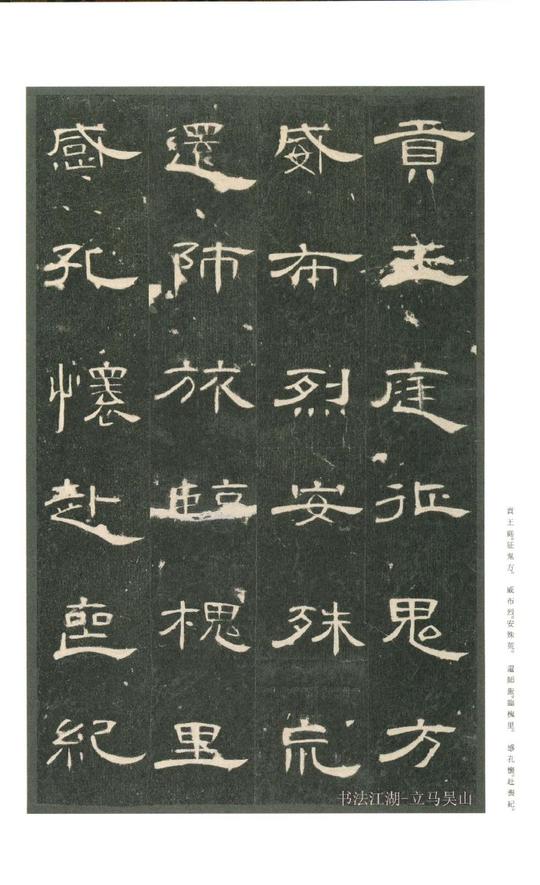 貢王庭征鬼方
威布烈安殊荒
還師旅臨槐里
感孔懷赴喪紀
貢王庭。征鬼方。威布烈。安殊荒。還師旅。臨槐里。感孔懷。赴喪紀。
书法江湖-立马吴山